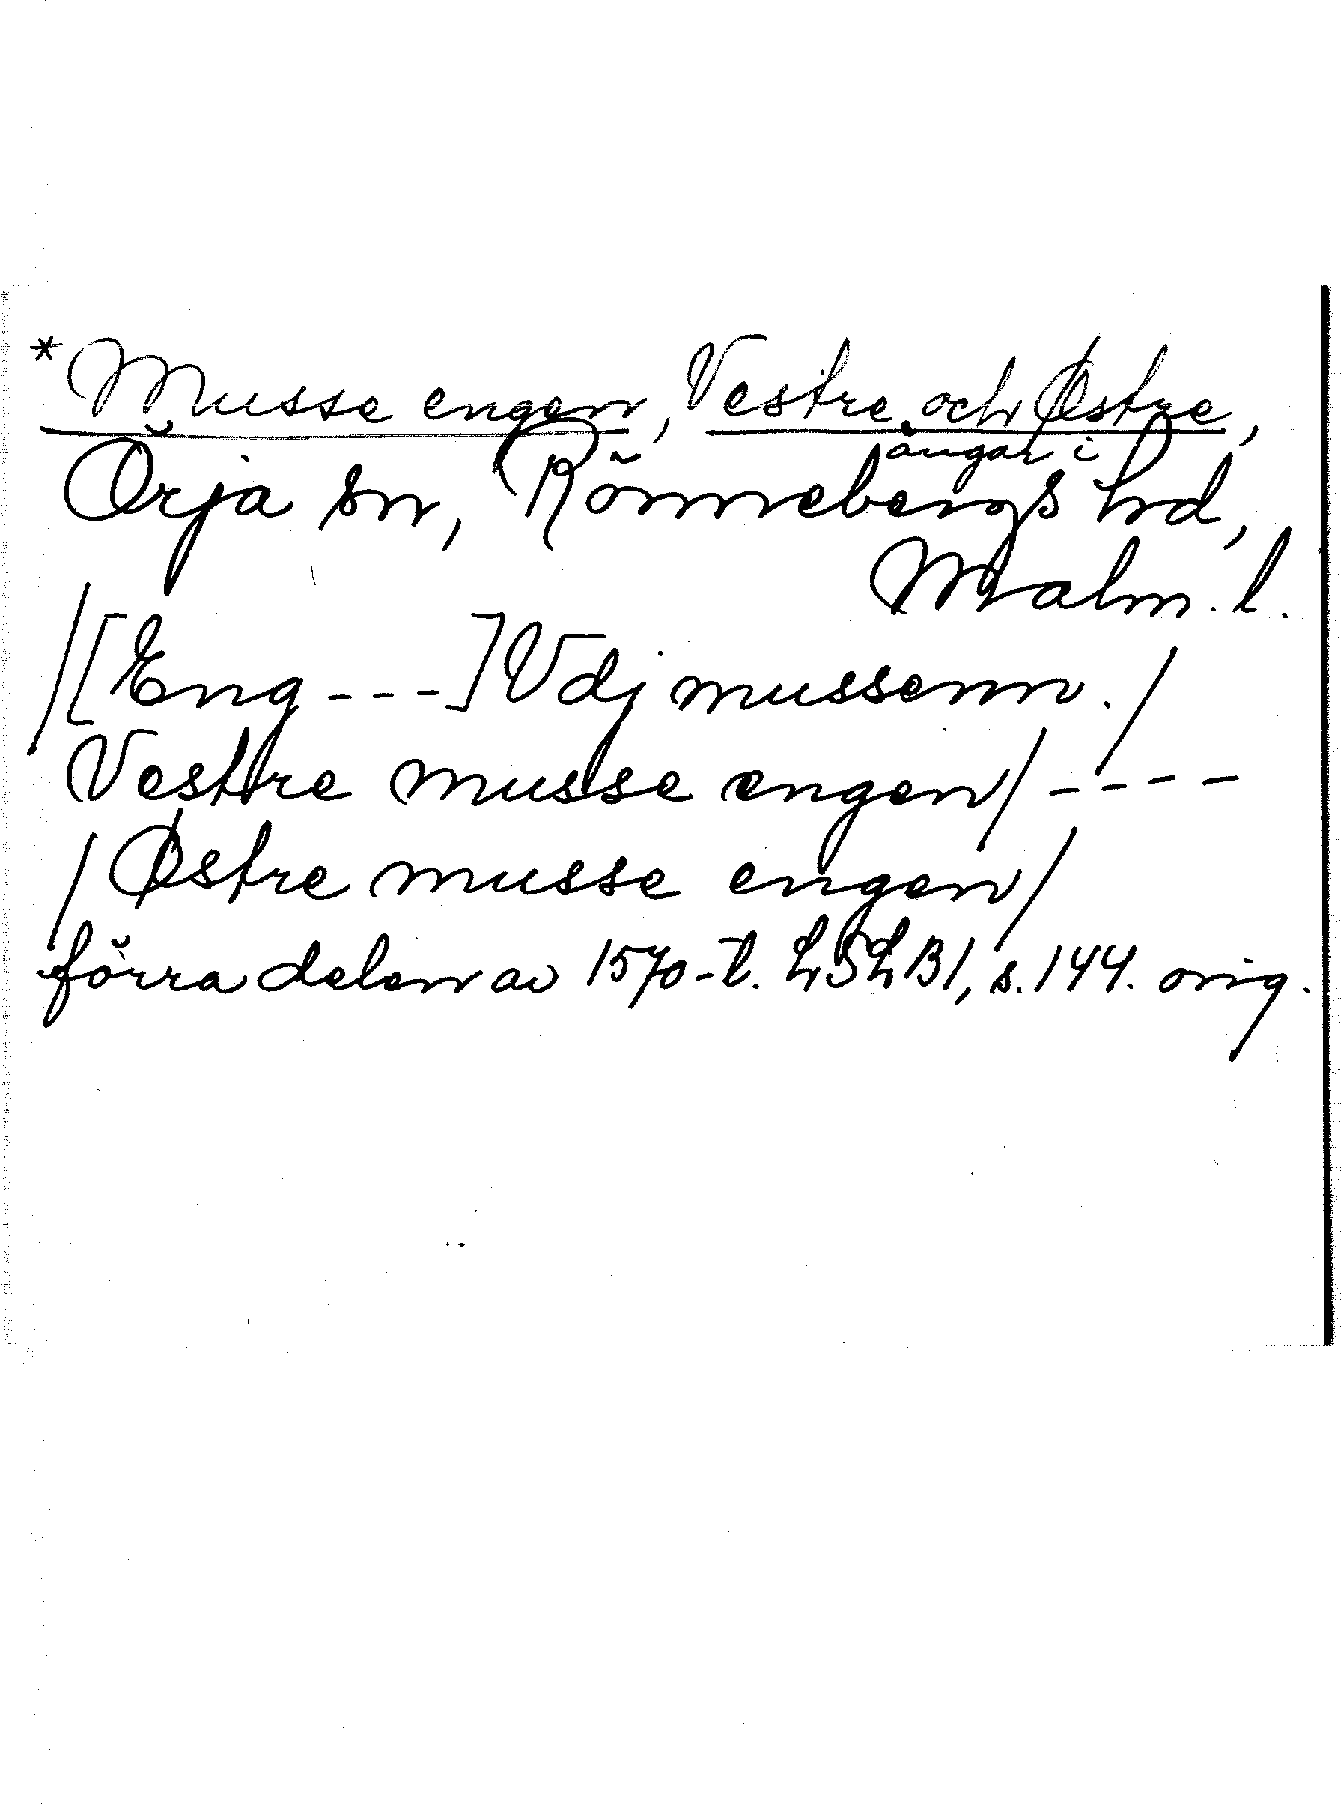 *Musse engen, Vestre och Østre,
ängar i
Örja sn, Rönnebergs hrd,
Malm. l.
/[Eng ---] Vdj mussenn./
Vestre musse engen/----
/Østre musse engen/
förra delen av 1570-t. LSLB1, s. 144. orig.